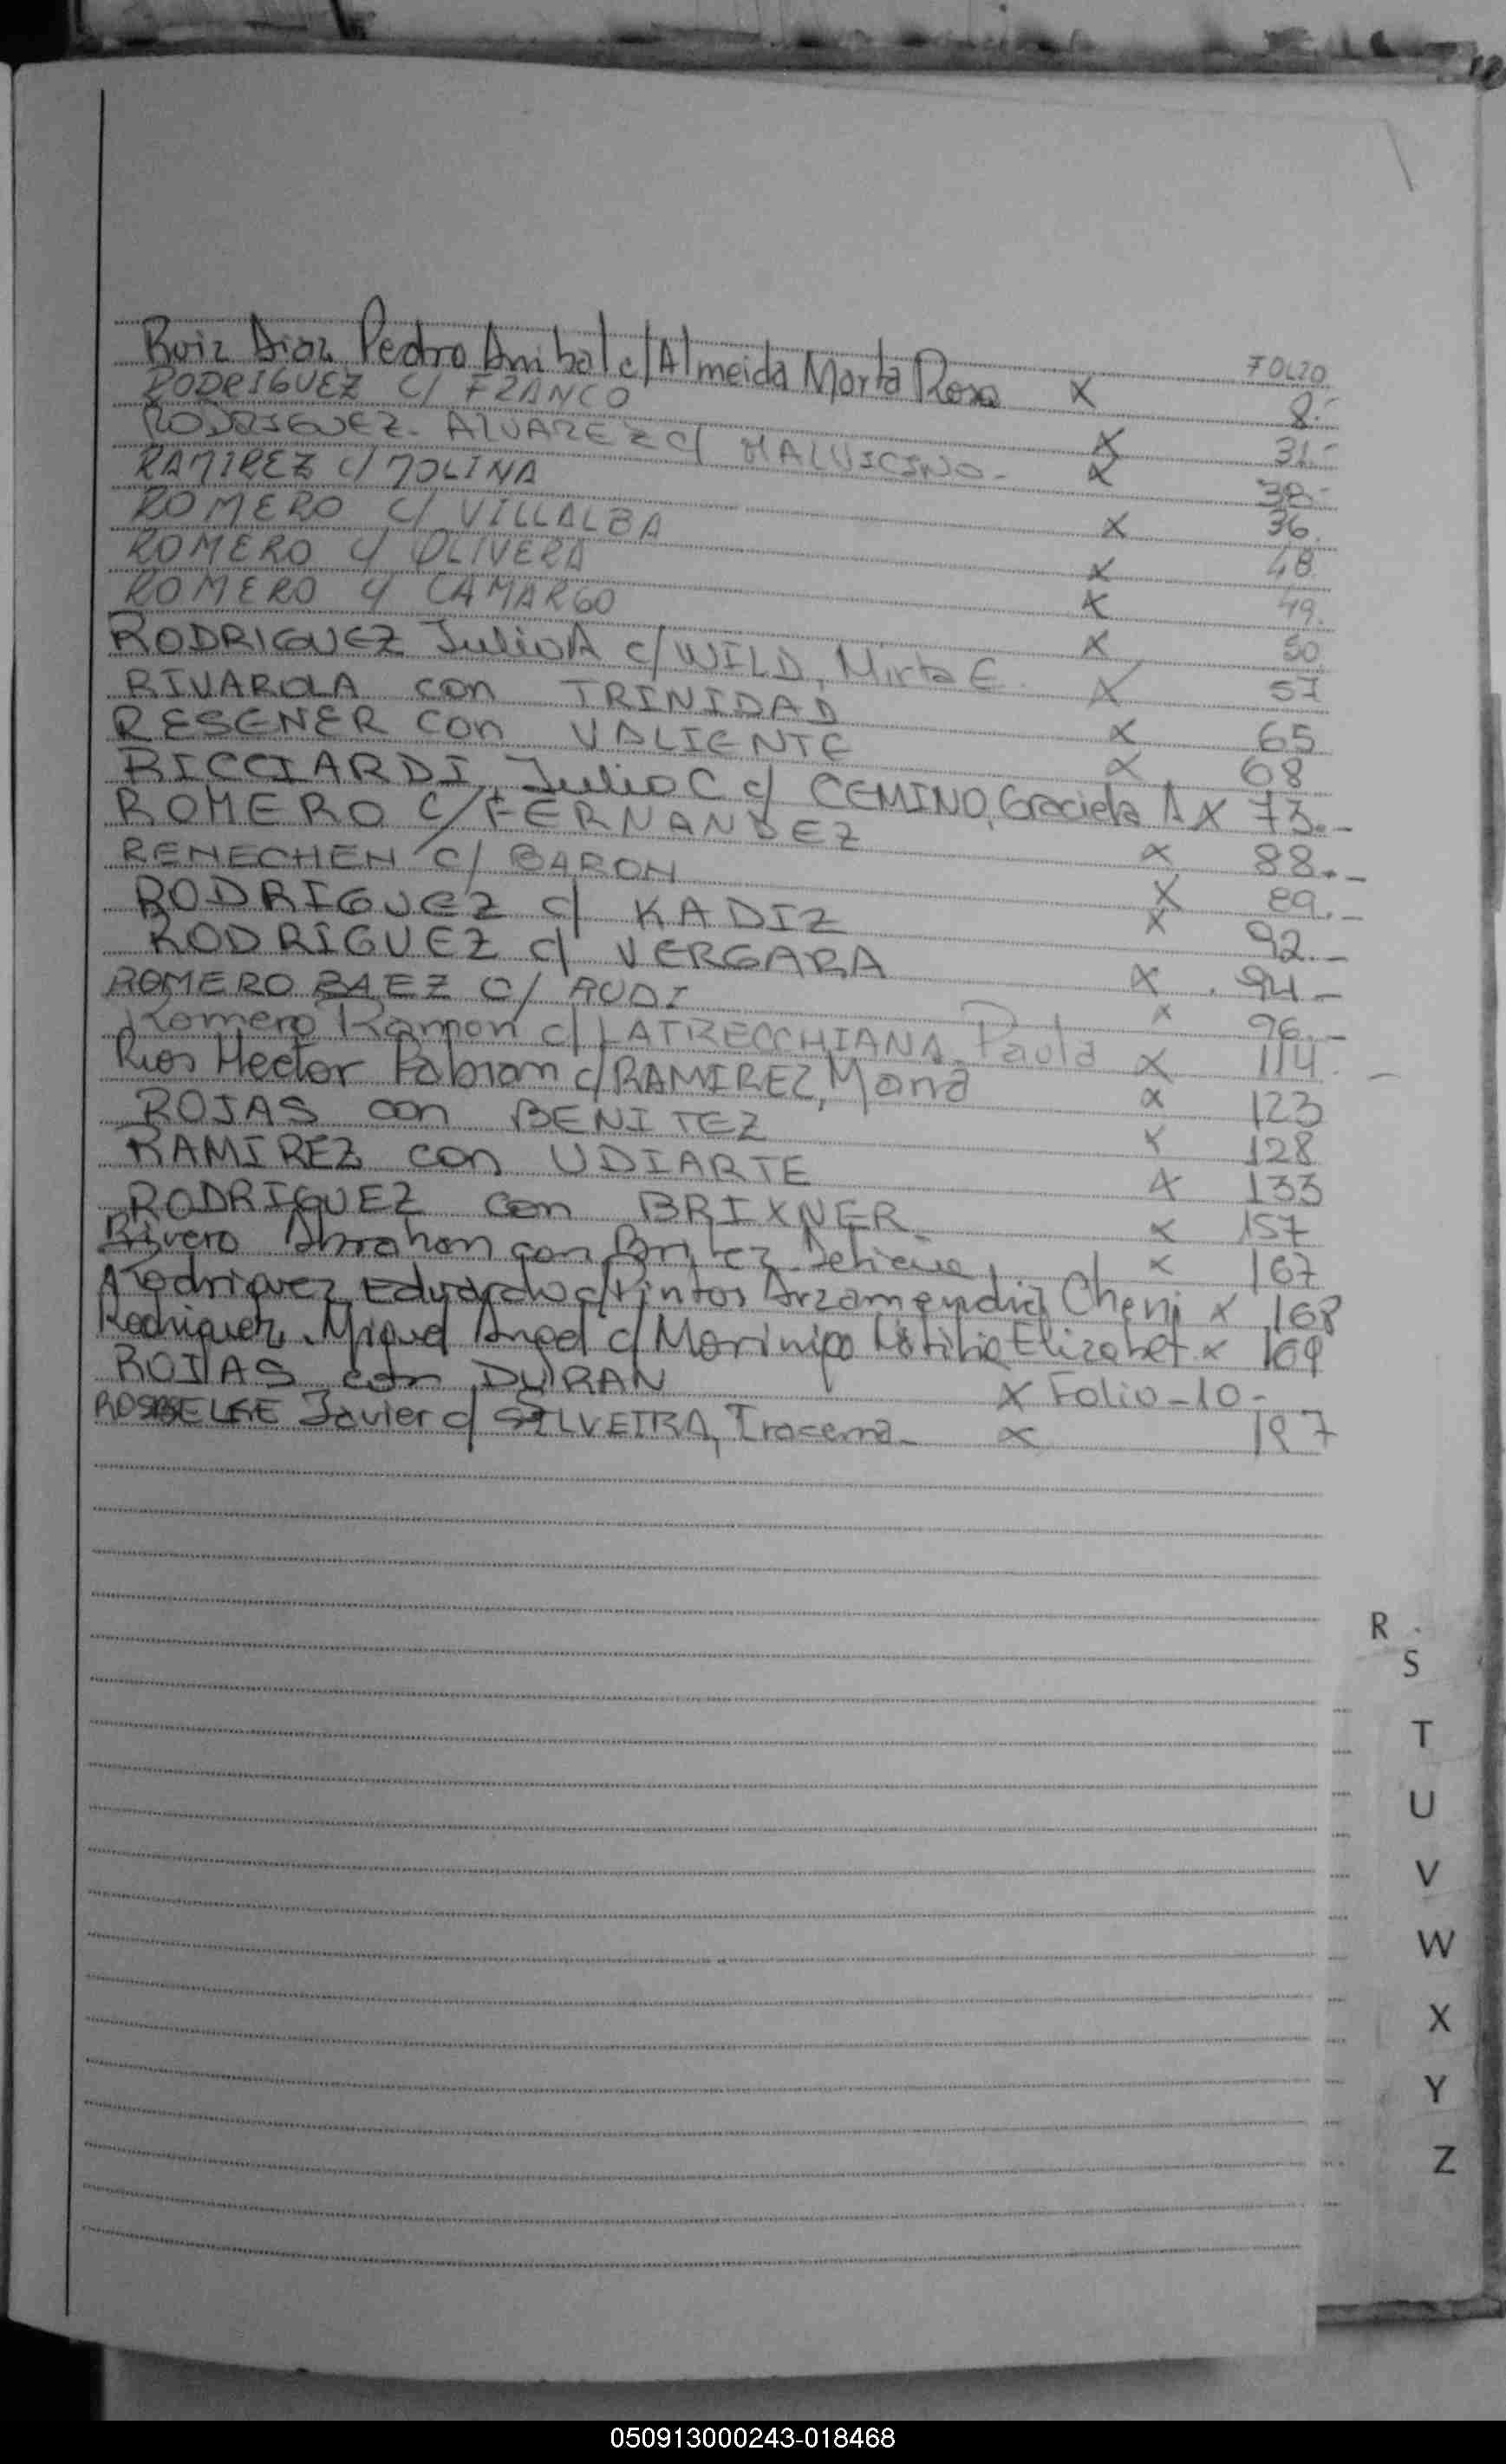 FOLIO
Ruiz Diaz Pedro Anibal c/ Almeida Marta Rosa X 8.-
RODRIGUEZ c/ FRANCO X 31.-
RODRIGUEZ- ALVAREZ c/ MALVICINO- X 38.-
RAMIREZ c/ MOLINA X 36.
ROMERO c/ VILLALBA X 48
ROMERO c/ OLIVERA X 49.
ROMERO c/ CAMARGO X 50
RODRIGUEZ Julio A c/ WILD, Mirta E. X 57
RIVAROLA con TRINIDAD X 65
RESENER con VALIENTE X 68
RICCIARDI, Julio C c/ CEMINO, Graciela A X 73.-
ROMERO c/ FERNANDEZ X 88.-
RENECHEN c/ BARON X 89.-
RODRIGUEZ c/ KADIZ X 92.-
RODRIGUEZ c/ VERGARA X 94-
ROMERO BAEZ c/ RUDI X 96.-
Romero Ramon c/ LATRECCHIANA, Paula X 114. -
Rios Hector Fabian c/ RAMIREZ, Maria X 123
ROJAS con BENITEZ X 128
RAMIREZ con UDIARTE X 133
RODRIGUEZ con BRIXNER X 157
Rivero Abrahan con Britez X 167
Rodriguez Eduardo c/ Pintos Arzamendia Cheni X 168
Rodriguez, Miguel Angel c/ Elizabet. X 169
ROJAS con DURAN X Folio-10-
Javier c/ SILVEIRA, Iracema- X 197
R
S
T
U
V
W
X
Y
Z
050913000243-018468